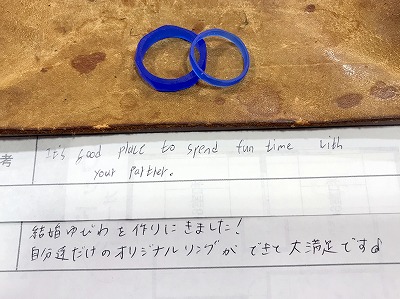 考
It's good place to spend fun time with
your partner.
結婚ゆびわを作りにきました!
自分達だけのオリジナルリングができて大満足です♪